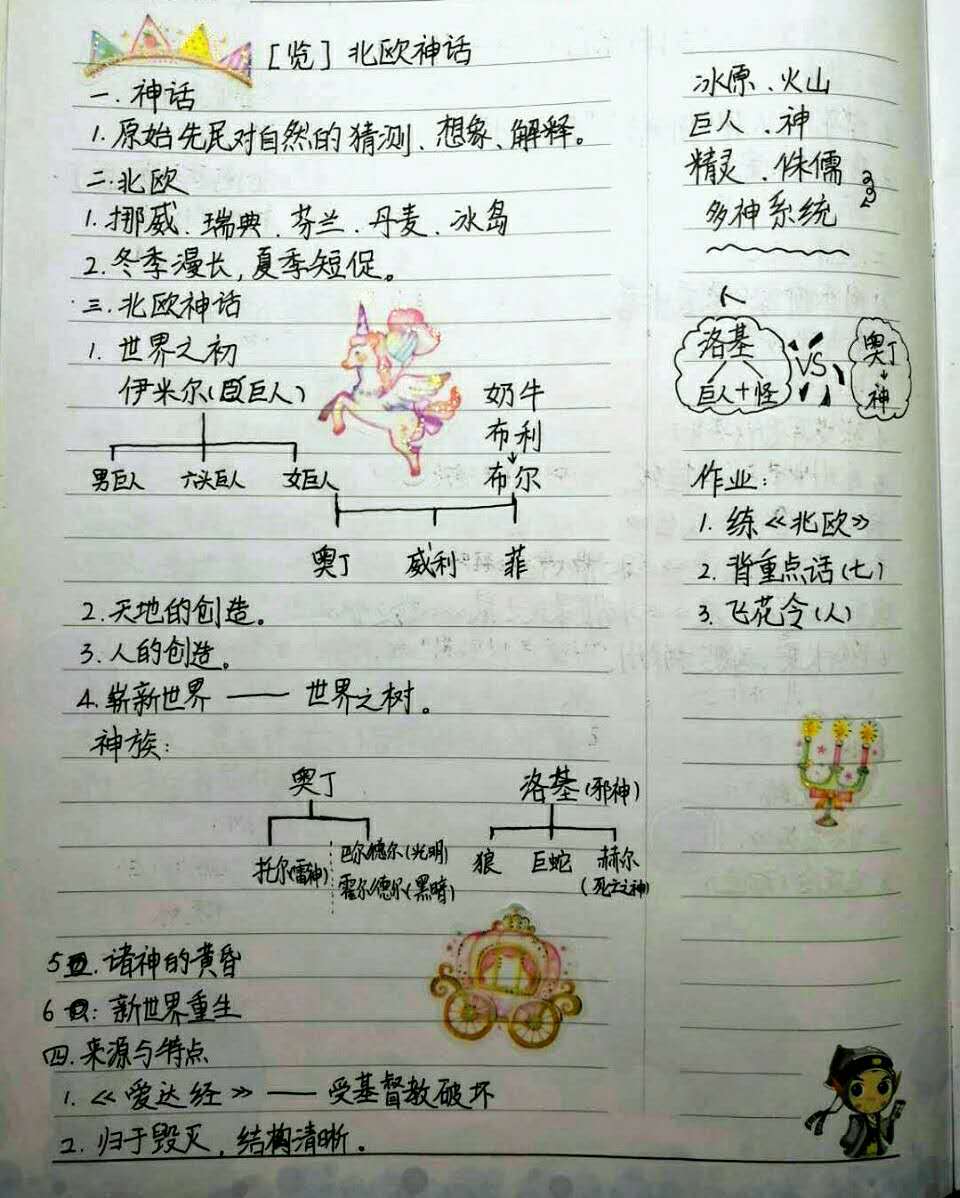 [览] 北欧神话
一. 神话
1. 原始先民对自然的猜测、想象、解释。
二. 北欧
1. 挪威、瑞典、芬兰、丹麦、冰岛
2. 冬季漫长,夏季短促。
三. 北欧神话
1. 世界之初
伊米尔(巨人)
奶牛
布利
布尔
男巨人 六头巨人 女巨人
奥丁 威利 菲
2. 天地的创造。
3. 人的创造。
4. 崭新世界 —— 世界之树。
神族:
奥丁 洛基(邪神)
托尔(雷神) 巴尔德尔(光明) 霍尔德尔(黑暗)
狼 巨蛇 赫尔(死亡之神)
5. 诸神的黄昏
6: 新世界重生
四. 来源与特点
1. 《爱达经》—— 受基督教破坏
2. 归于毁灭,结构清晰。
冰原、火山
巨人、神
精灵、侏儒
多神系统
人
洛基 VS 奥丁
巨人+怪 神
作业:
1. 练《北欧》
2. 背重点话(七)
3. 飞花令(人)